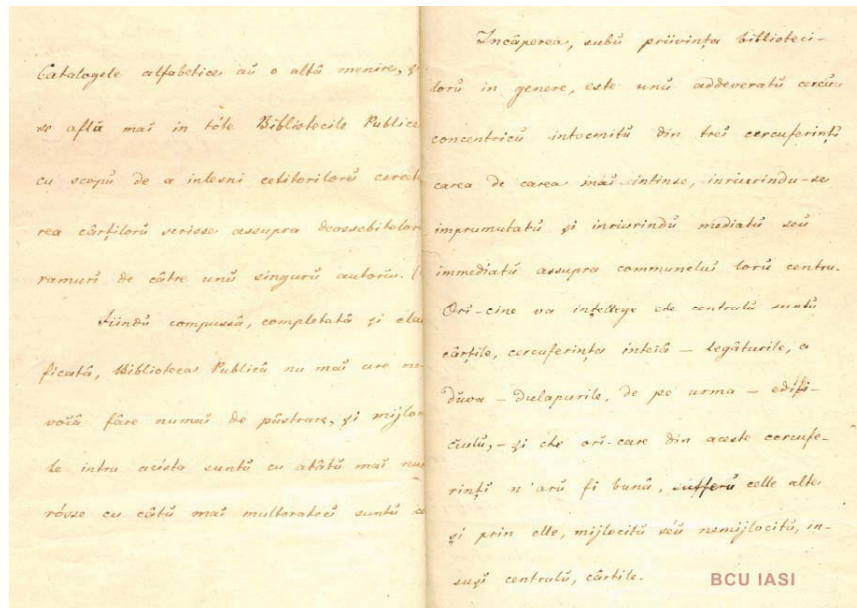 Catalogele alfabetice aŭ o altă menire, și
se află maĭ in tóte Bibliotecile Publice
cu scopŭ de a inlesni cetitorilorŭ cercet
rea cărțilorŭ scrisse assupra deossebitelor
ramurĭ de cătră unŭ singurŭ autorŭ.
Fiindŭ compussă, complotată și clas
ficată, Biblioteca Publică nu maĭ are ne
voiă făre numaĭ de păstrare, și mijlo
le intru acésta suntŭ cu atâtŭ maĭ nu
róse cu câtŭ maĭ multoraticĭ suntŭ c
Incăperea, subŭ priivința biblioteci-
lorŭ in genere, este unŭ addeveratŭ cercŭ
concentricŭ intocmitŭ din treĭ cercuferințĭ
carea de carea maĭ intinse, inriurindu-se
imprumutatŭ și inriurindŭ mediatŭ seŭ
immediatŭ assupra communeluĭ lorŭ centru.
Orĭ-cine va intellege che centrulŭ suntŭ
cărțile, cercuferința inteiă – legăturile, a
dŭua – dulapurile, de pe urma – edifi-
ciulŭ, – și che orĭ-care din aceste cercufe-
rințĭ n'arŭ fi bună, sufferŭ celle alte
și prin elle, mijlocitŭ séŭ nemijlocitŭ, in-
sușĭ centrulŭ, cărtile.
BCU IASI